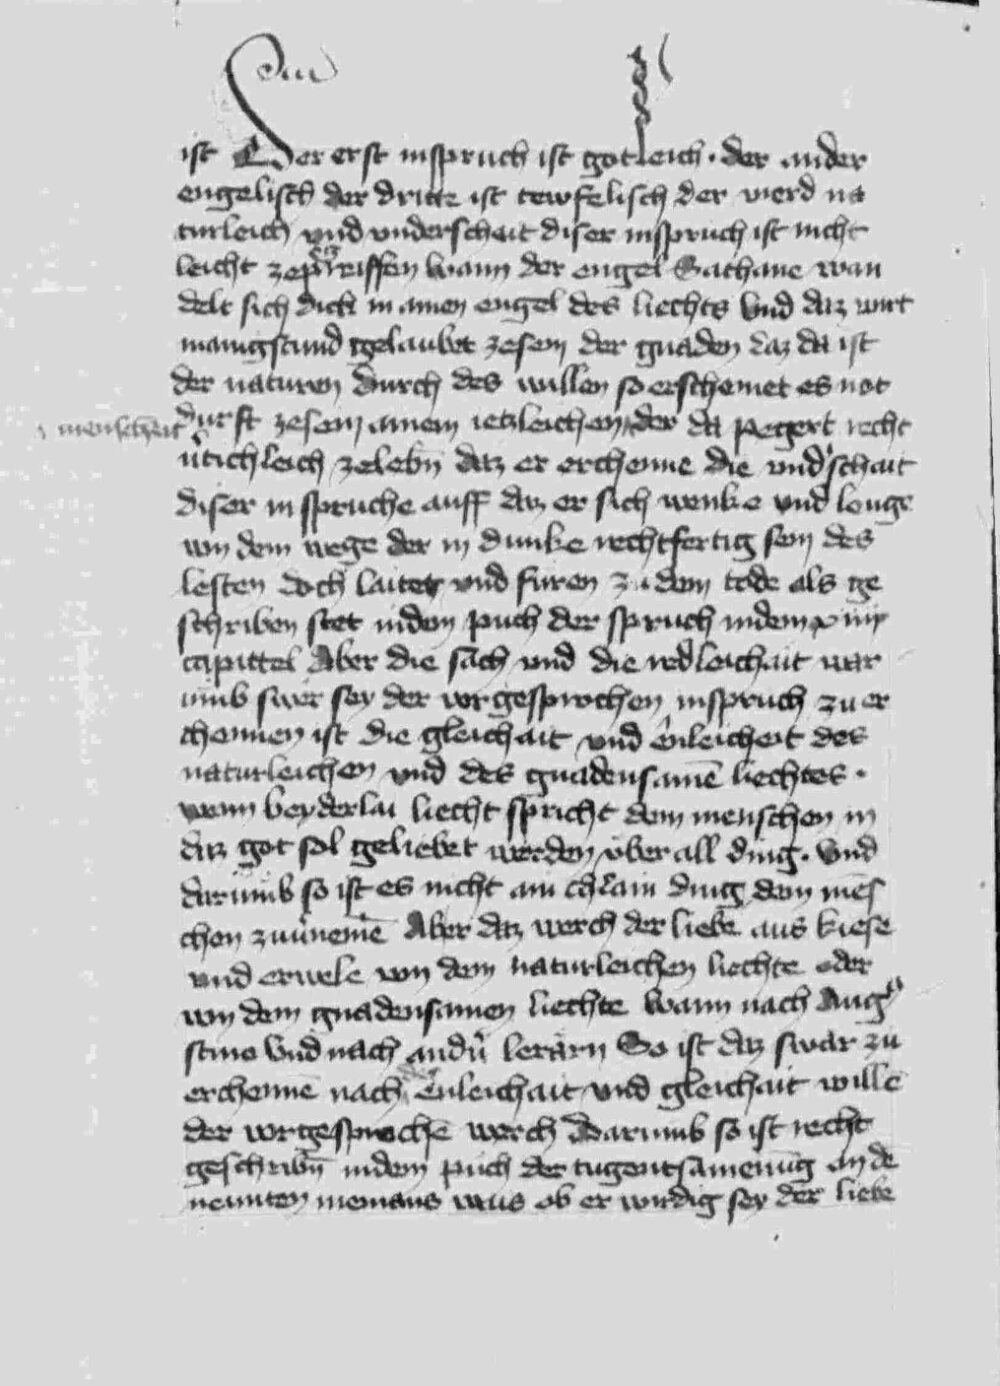 ist Der erst inspruch ist gotleich · der ander
engelisch der dritte ist tewfelisch der vierd na
turleich vnd vnderschait diser inspruch ist nicht
leicht zepegriffen wann der engel Sathane wan
delt sich dick in ainen engel des liechts Vnd daz wirt
manigstund gelaubet zesein der gnaden daz da ist
der naturen durch des willen so erscheinet es not
durft zesein ainem ietzleichen der da pegert recht
menschen
zeleben daz er erchenne die vndschait
diser inspruche auff daz er sich wenke vnd
von dem wege der in dunke rechtfertig sein des
lesten doch laitet vnd furen zu dem tode als ge
schriben stet indem puch der spruch indem xiiij
capittel Aber die sach vnd die redleichait war
umb swer sey der vorgesprochen inspruch zu er
chennen ist die gleichait vnd enleicheit des
naturleichen vnd des gnadensamē liechtes ·
wann beyderlai liecht spricht dem menschen in
daz got sol geliebet werden vber all ding · Vnd
darumb so ist es nicht ain chlain ding dem mēs
chen zuuernemē Aber daz werch der liebe aus kiese
vnd erwele von dem naturleichen liechte oder
von dem gnadensamen liechte Wann nach Aug
stino Vnd nach andn lerarn So ist daz swar zu
erchennē nach enleichait vnd gleichait willē
der vorgesprochē werch Darumb so ist recht
geschribn indem puch der tugentsamenung an dē
neunten niemans wais ob er wirdig sey der liebe